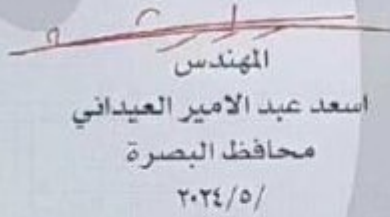 المهندس
اسعد عبد الامير العيداني
محافظ البصرة
/٢٠٢٤/٥